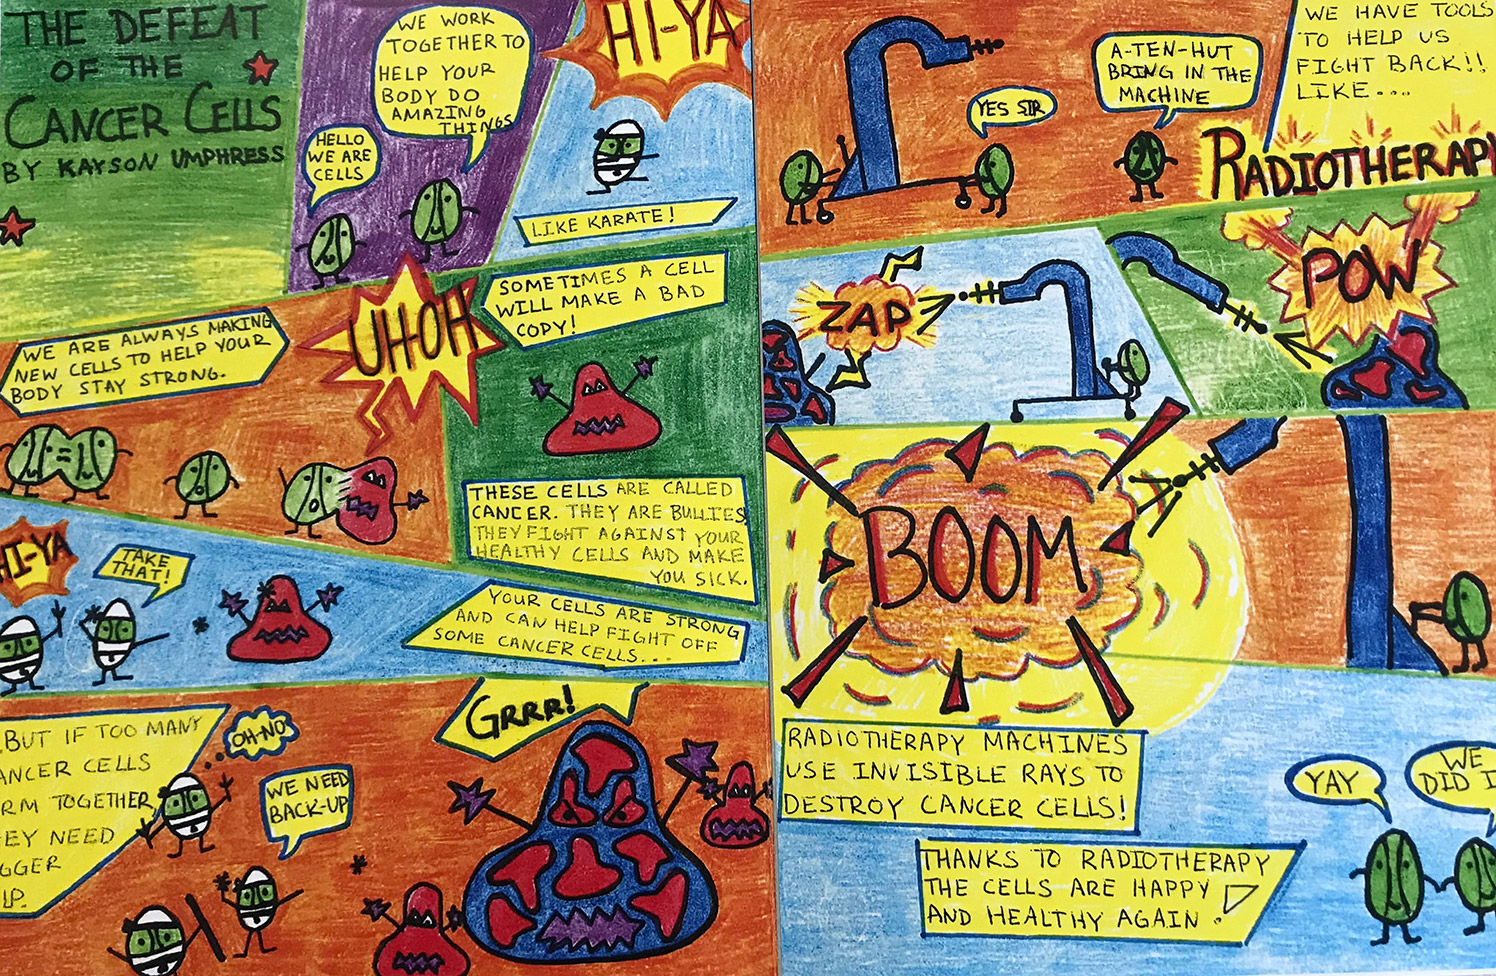 THE DEFEAT
OF THE
CANCER CELLS
BY KAYSON UMPHRESS
HELLO
WE ARE
CELLS
WE WORK
TOGETHER TO
HELP YOUR
BODY DO
AMAZING
THINGS
HI-YA
LIKE KARATE!
WE ARE ALWAYS MAKING
NEW CELLS TO HELP YOUR
BODY STAY STRONG.
UH-OH
SOMETIMES A CELL
WILL MAKE A BAD
COPY!
THESE CELLS ARE CALLED
CANCER. THEY ARE BULLIES,
THEY FIGHT AGAINST YOUR
HEALTHY CELLS AND MAKE
YOU SICK.
HI-YA
TAKE
THAT!
YOUR CELLS ARE STRONG
AND CAN HELP FIGHT OFF
SOME CANCER CELLS...
BUT IF TOO MANY
ANCER CELLS
RM TOGETHER,
EY NEED
GGER
LP.
OH-NO
WE NEED
BACK-UP
GRRR!
YES SIR
A-TEN-HUT
BRING IN THE
MACHINE
WE HAVE TOOLS
TO HELP US
FIGHT BACK!!
LIKE....
RADIOTHERAPY
ZAP
POW
BOOM
RADIOTHERAPY MACHINES
USE INVISIBLE RAYS TO
DESTROY CANCER CELLS!
THANKS TO RADIOTHERAPY
THE CELLS ARE HAPPY
AND HEALTHY AGAIN!
YAY
WE
DID I